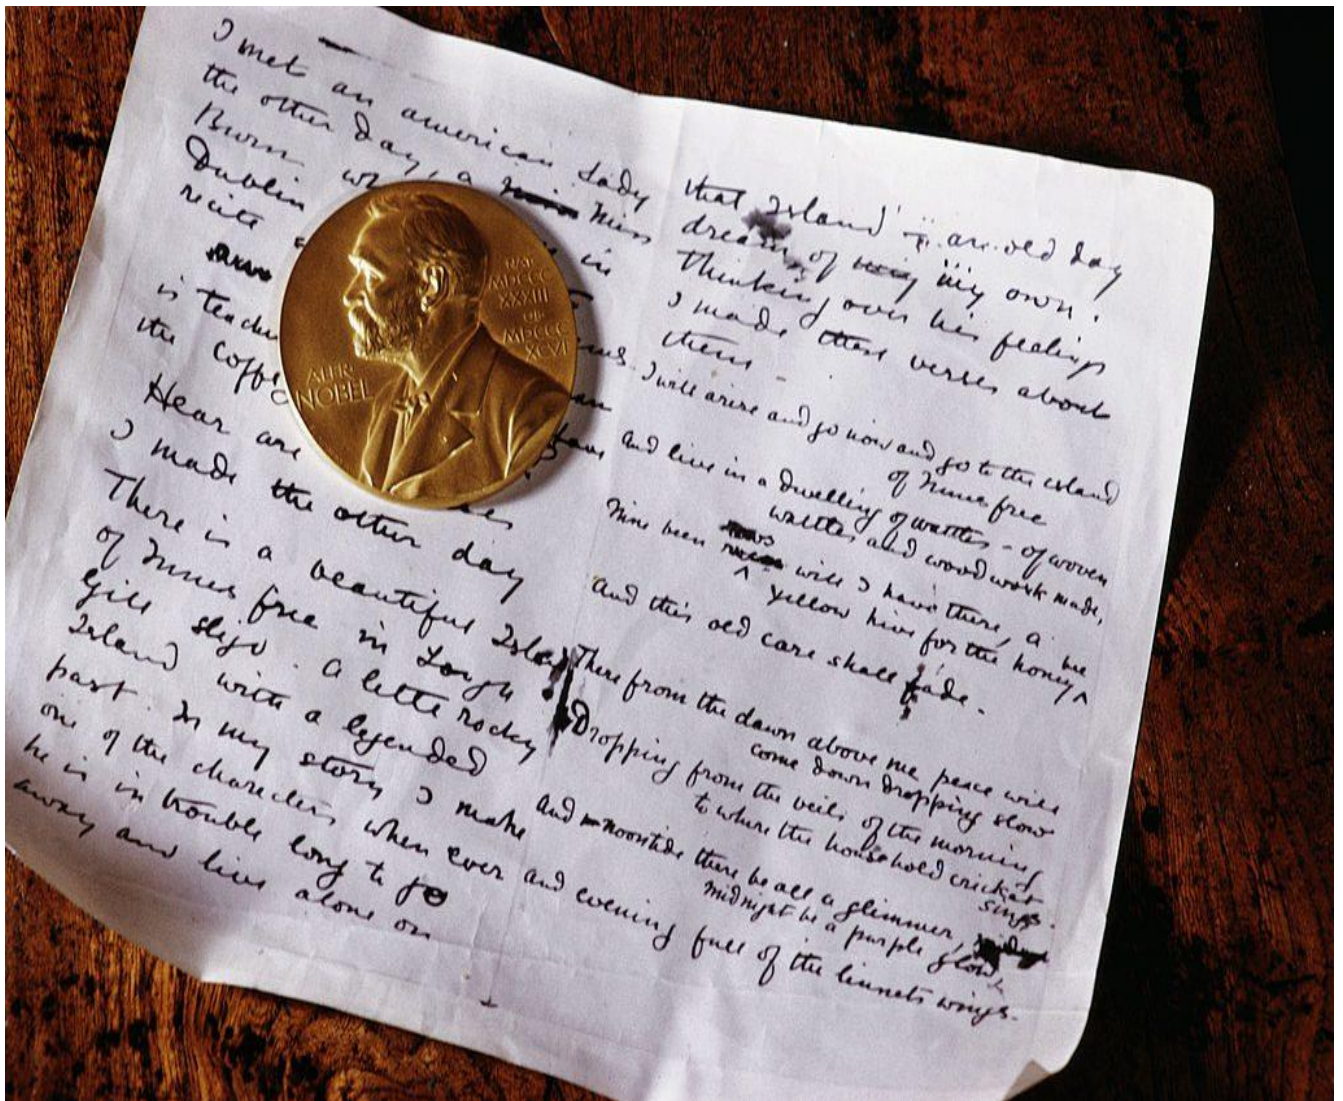 I met an american Lady
the other day, a Miss
Burn in
Dublin
recite
is teach
the coffy
Hear are
I made the other day
There is a beautiful Isla
of Innis free in Lough
Gill Sligo. A little rocky
Island with a legended
past. In my story I make
one of the characters when ever
he is in trouble long to go
away and live alone on
that Island - an old day
dream of my own.
Thinking over his feelings
I made these verses about
them -
I will arise and go now and go to the island
of Innis free
And live in a dwelling of wattles - of woven
wattles and wood work made,
Nine been rows will I have there, a
yellow hive for the honey bee
And this old care shall fade.
There from the dawn above me peace will
come down dropping slow
Dropping from the veils of the morning
to where the household cricket
sings.
And noontide there be all a glimmer,
midnight be a purple glow,
and evening full of the linnets wings.
ALFR.
NOBEL
NAT.
MDCCC
XXXIII
OB.
MDCCC
XCVI